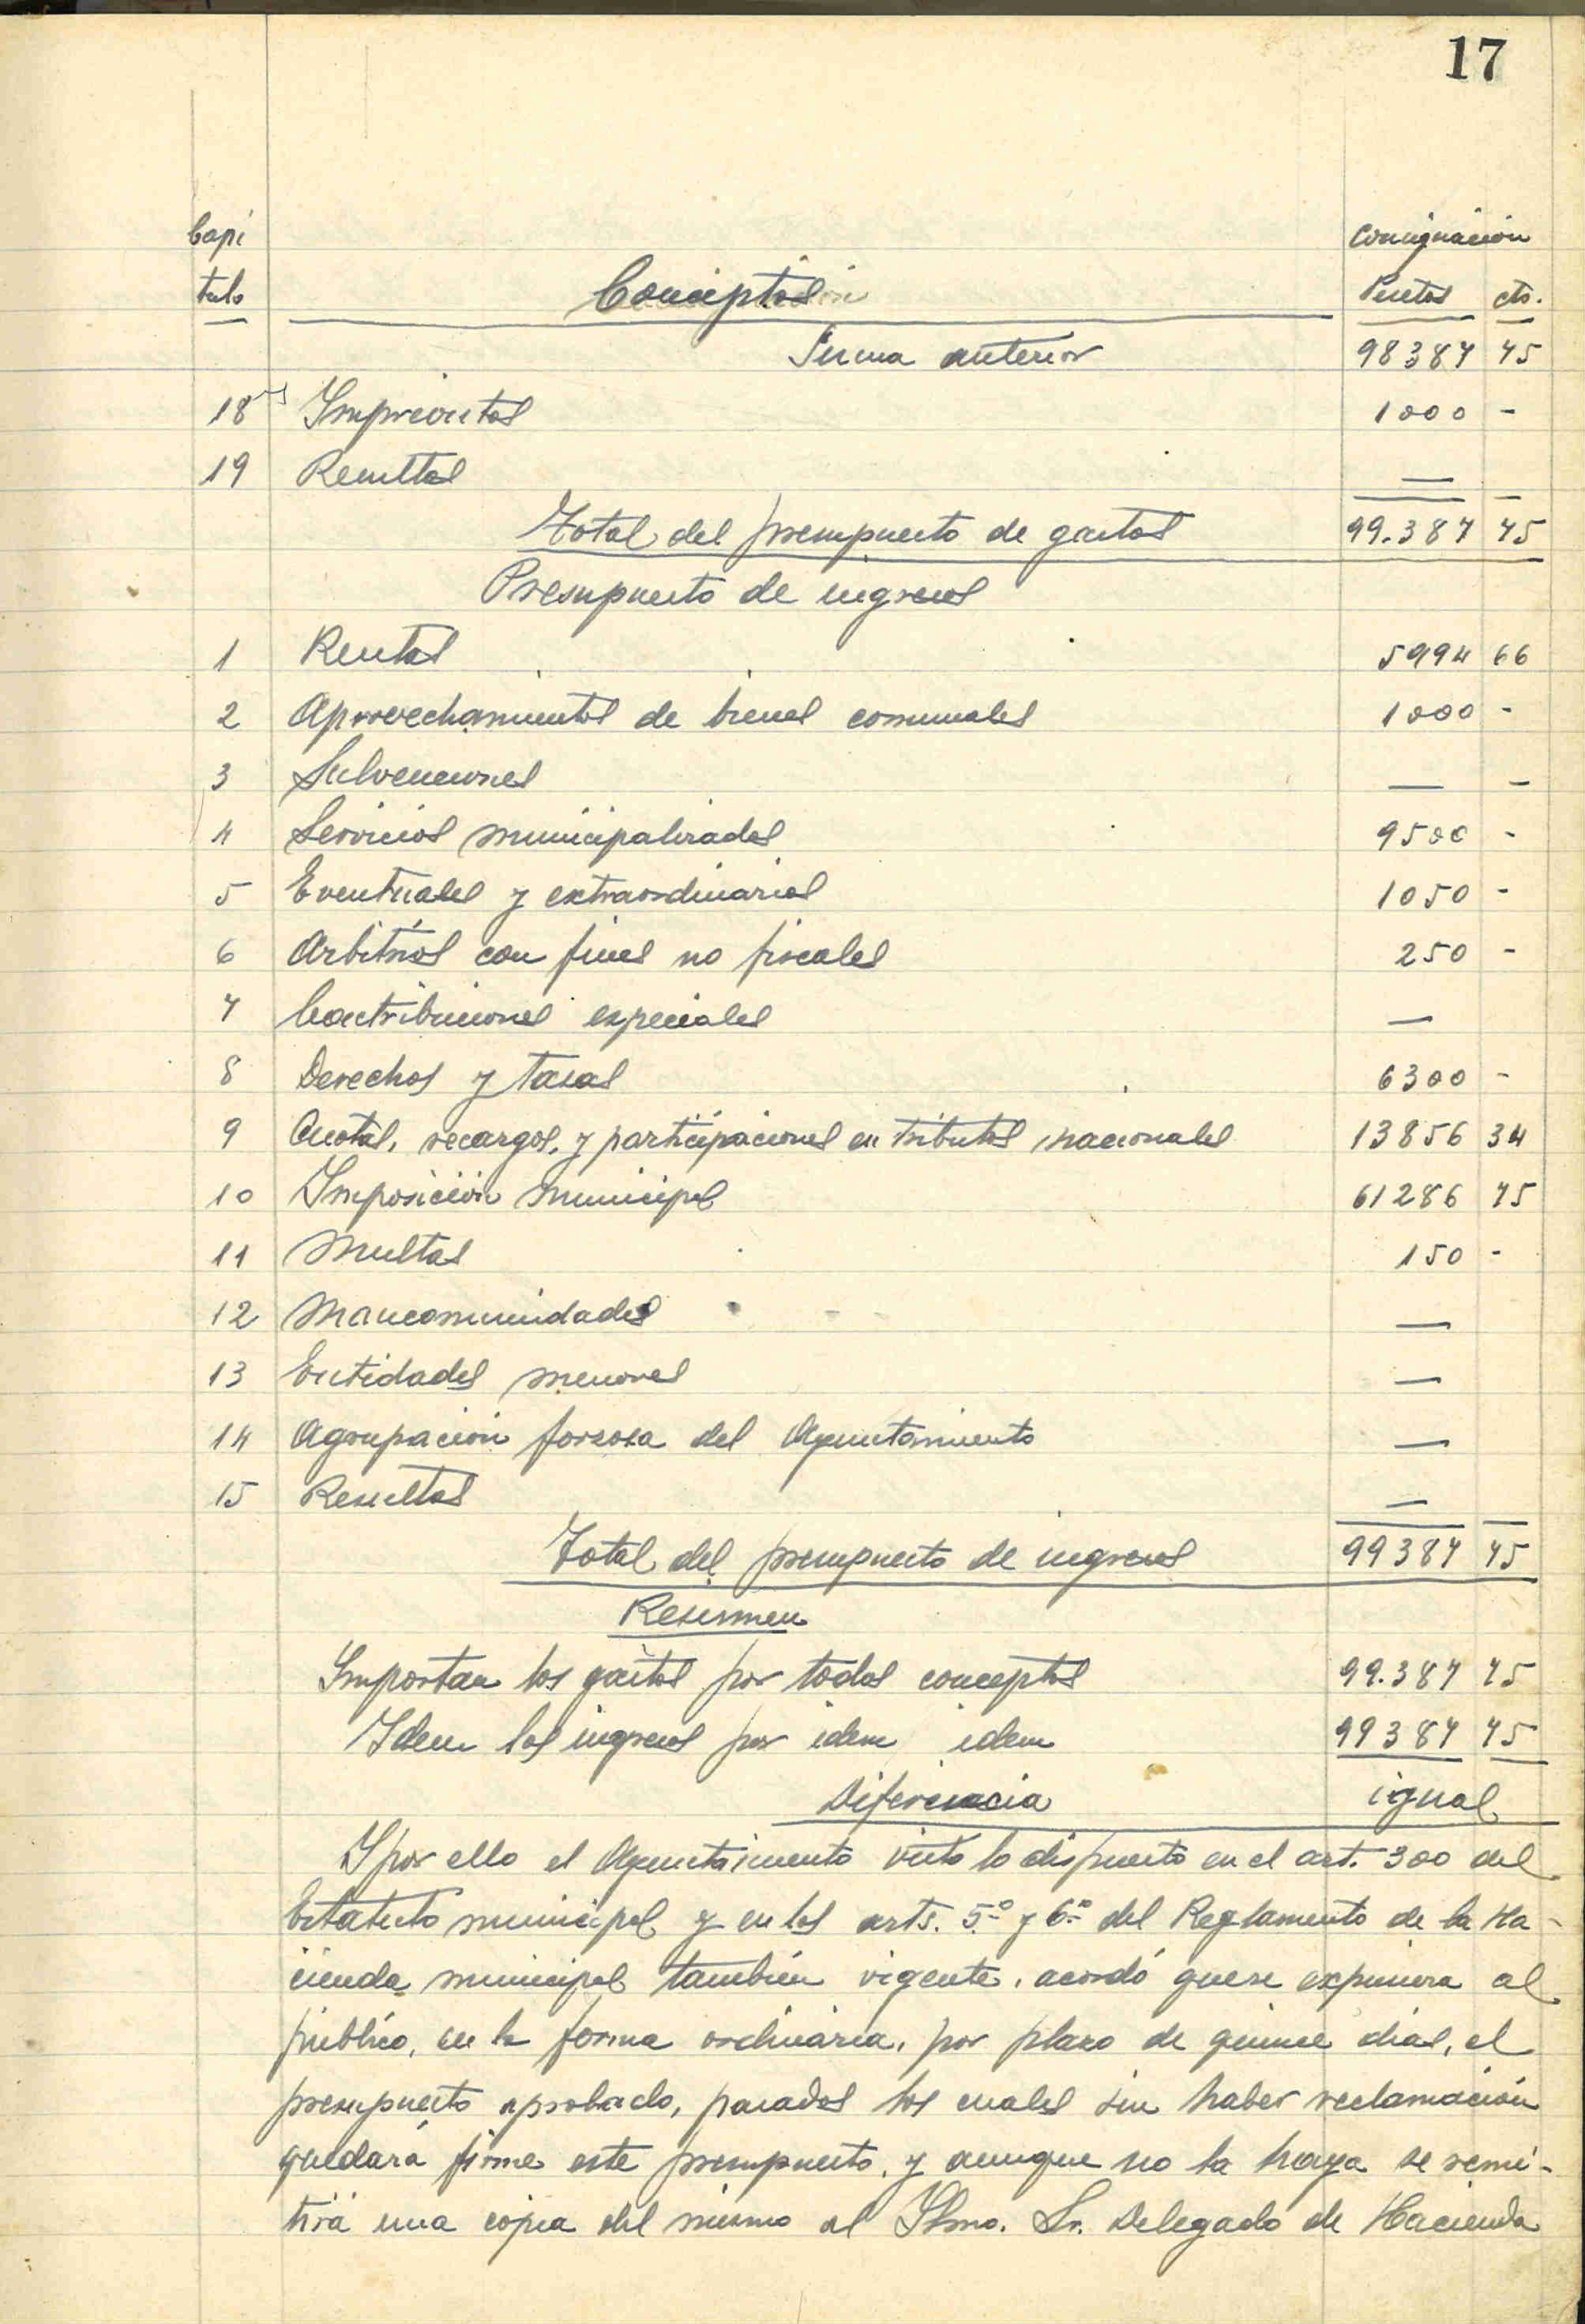 17
Capi Consignación
tulo Conceptos Pesetas cts.
Suma anterior 98387 75
18 Imprevistos 1000 -
19 Resultas — -
Total del presupuesto de gastos 99.387 75
Presupuesto de ingresos
1 Rentas 5994 66
2 Aprovechamientos de bienes comunales 1000 -
3 Subvenciones — -
4 Servicios municipalizados 9500 -
5 Eventuales y extraordinarios 1050 -
6 Arbitrios con fines no fiscales 250 -
7 Contribuciones especiales —
8 Derechos y tasas 6300 -
9 Cuotas, recargos, y participaciones en tributos nacionales 13856 34
10 Imposición municipal 61286 75
11 Multas 150 -
12 Mancomunidades —
13 Entidades menores —
14 Agrupación forzosa del Ayuntamiento —
15 Resultas —
Total del presupuesto de ingresos 99387 75
Resumen
Importan los gastos por todos conceptos 99.387 75
Idem los ingresos por idem idem 99387 75
Diferencia igual
Y por ello el Ayuntamiento visto lo dispuesto en el art. 300 del
Estatuto municipal y en los arts. 5º y 6º del Reglamento de la Ha-
cienda municipal también vigente, acordó que se expusiera al
público, en la forma ordinaria, por plazo de quince dias, el
presupuesto aprobado, pasados los cuales sin haber reclamación
quedará firme este presupuesto, y aunque no la haya se remi-
tirá una copia del mismo al Ilmo. Sr. Delegado de Hacienda